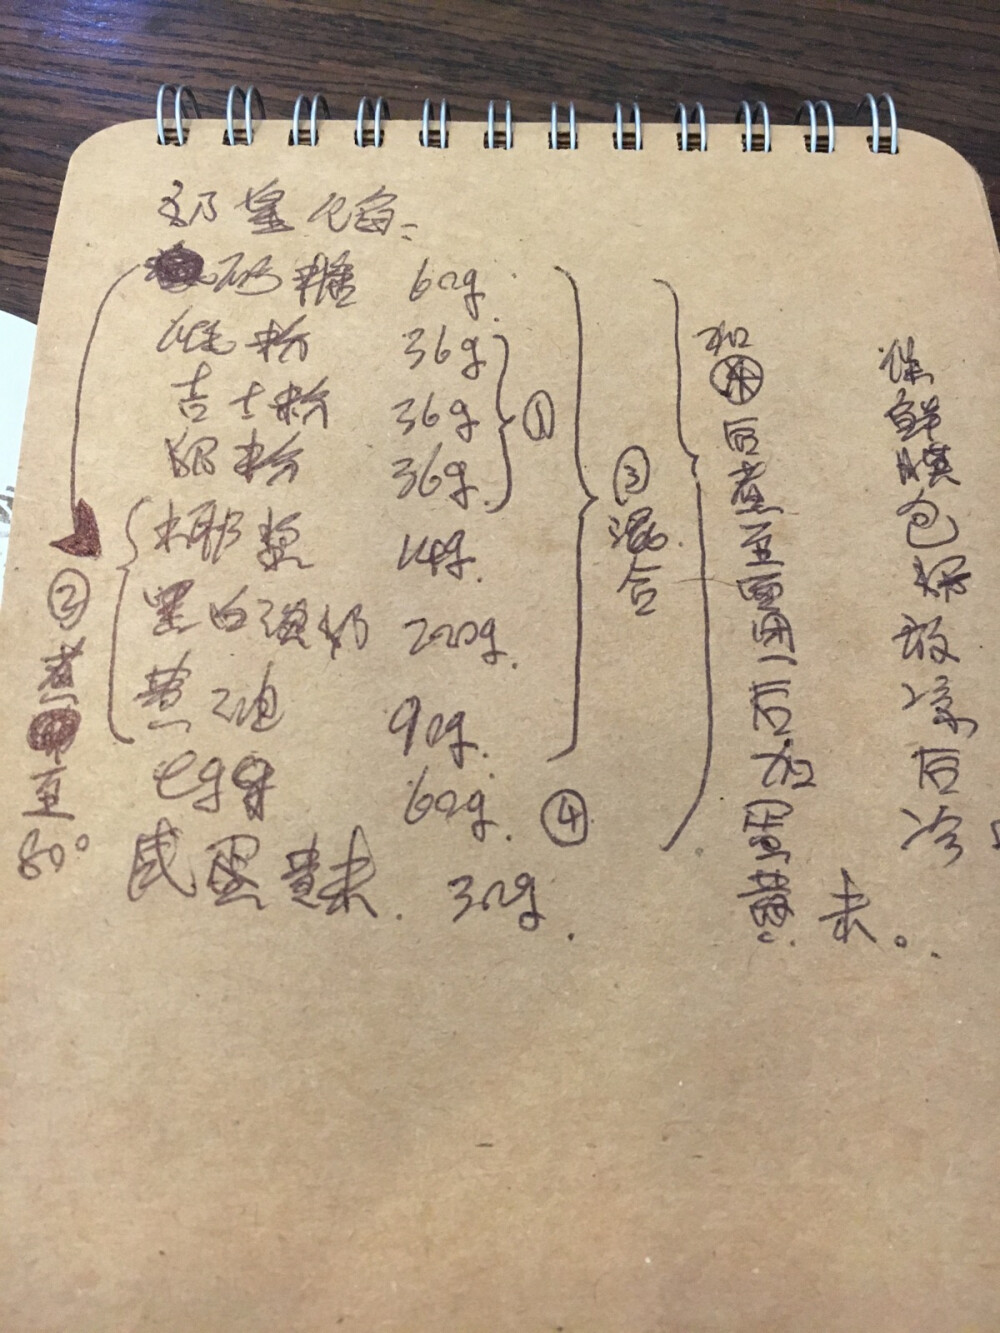 奶皇馅:
砂糖 60g.
低粉 36g
吉士粉 36g
奶粉 36g.
①
椰浆 14g.
黑白淡奶 220g.
黄油 90g.
egg 60g. ④
咸蛋黄末. 30g.
②煮至80°
③混合
和④后煮至面团后加蛋黄末。
保鲜膜包好放凉后冷